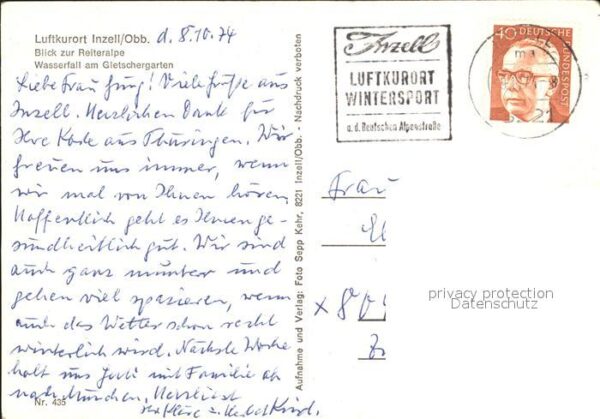 Luftkurort Inzell/Obb.
d. 8.10.74
Blick zur Reiteralpe
Wasserfall am Gletschergarten
Liebe Frau Jung! Viele Grüße aus
Inzell. Herzlichen Dank für
Ihre Karte aus Thüringen. Wir
freuen uns immer, wenn
wir mal von Ihnen hören.
Hoffentlich geht es Ihnen ge-
sundheitlich gut. Wir sind
auch ganz munter und
gehen viel spazieren, wenn
auch das Wetter schon recht
winterlich wird. Nächste Woche
holt uns mit Familie ab
nach München. Herzlichst
Nr. 435
Aufnahme und Verlag: Foto Sepp Kehr, 8221 Inzell/Obb. - Nachdruck verboten
Inzell
LUFTKURORT
WINTERSPORT
a. d. Deutschen Alpenstraße
40
DEUTSCHE BUNDESPOST
Frau
privacy protection
Datenschutz